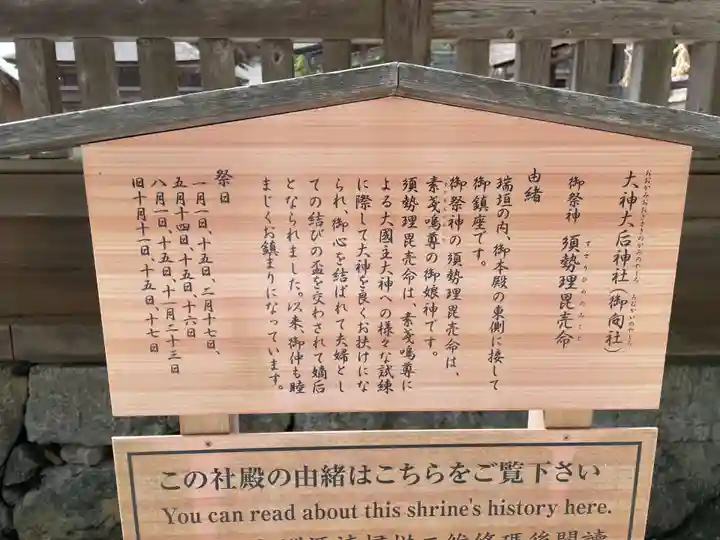 大神大后神社（御向社）
御祭神 須勢理毘売命
由緒
瑞垣の内、御本殿の東側に接して
御鎮座です。
御祭神の須勢理毘売命は、
素戔嗚尊の御娘神です。
須勢理毘売命は、素戔嗚尊に
よる大國主大神への様々な試練
に際して大神を良くお扶けにな
られ、御心を結ばれて夫婦とし
ての結びの盃を交わされて嫡后
となられました。以来、御仲も睦
まじくお鎮まりになっています。
祭日
一月一日、十五日、二月十七日、
五月十四日、十五日、十六日
八月一日、十五日、十一月二十三日
旧十月十一日、十五日、十七日
この社殿の由緒はこちらをご覧下さい
You can read about this shrine's history here.